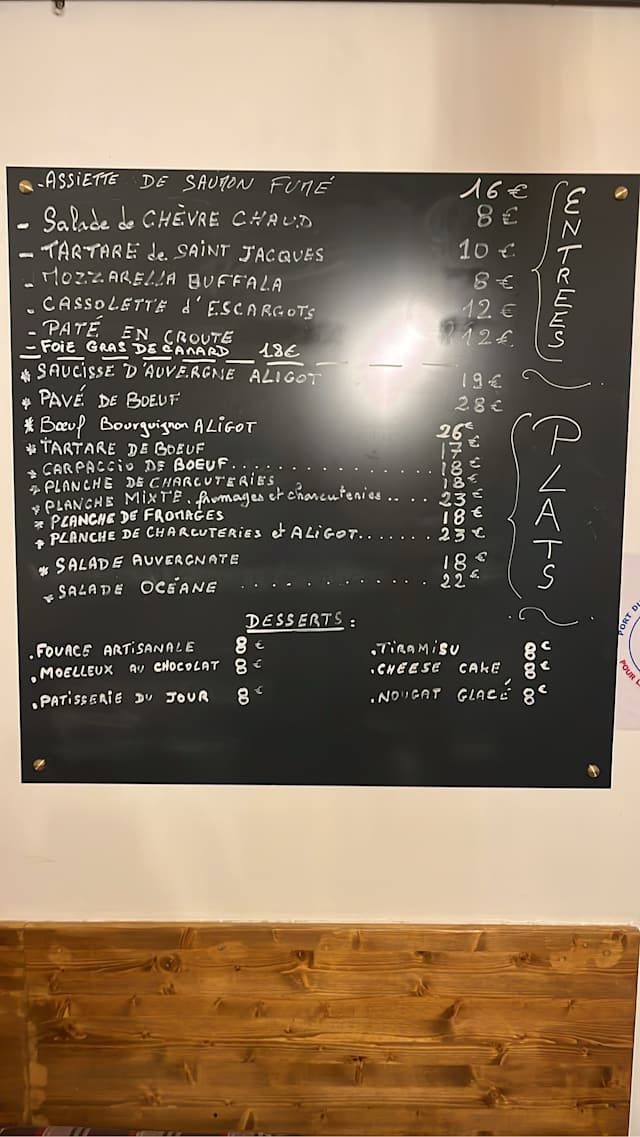 - ASSIETTE DE SAUMON FUMÉ 16 €
- Salade de CHÈVRE CHAUD 8 €
- TARTARE de SAINT JACQUES 10 €
- MOZZARELLA BUFFALA 8 €
- CASSOLETTE d'ESCARGOTS 12 €
- PATÉ EN CROUTE 12 €
- FOIE GRAS DE CANARD 18€
ENTREES
* SAUCISSE D'AUVERGNE ALIGOT 19 €
* PAVÉ DE BOEUF 28 €
* Bœuf Bourguignon ALIGOT 26 €
* TARTARE DE BOEUF 17 €
* CARPACCIO DE BOEUF 18 €
* PLANCHE DE CHARCUTERIES 18 €
* PLANCHE MIXTE. fromages et charcuteries 23 €
* PLANCHE DE FROMAGES 18 €
* PLANCHE DE CHARCUTERIES et ALIGOT 23 €
* SALADE AUVERGNATE 18 €
* SALADE OCÉANE 22 €
PLATS
DESSERTS :
. FOUACE ARTISANALE 8 €
. MOELLEUX AU CHOCOLAT 8 €
. PATISSERIE DU JOUR 8 €
. TIRAMISU 8 €
. CHEESE CAKE 8 €
. NOUGAT GLACÉ 8 €
PORT DU
POUR L